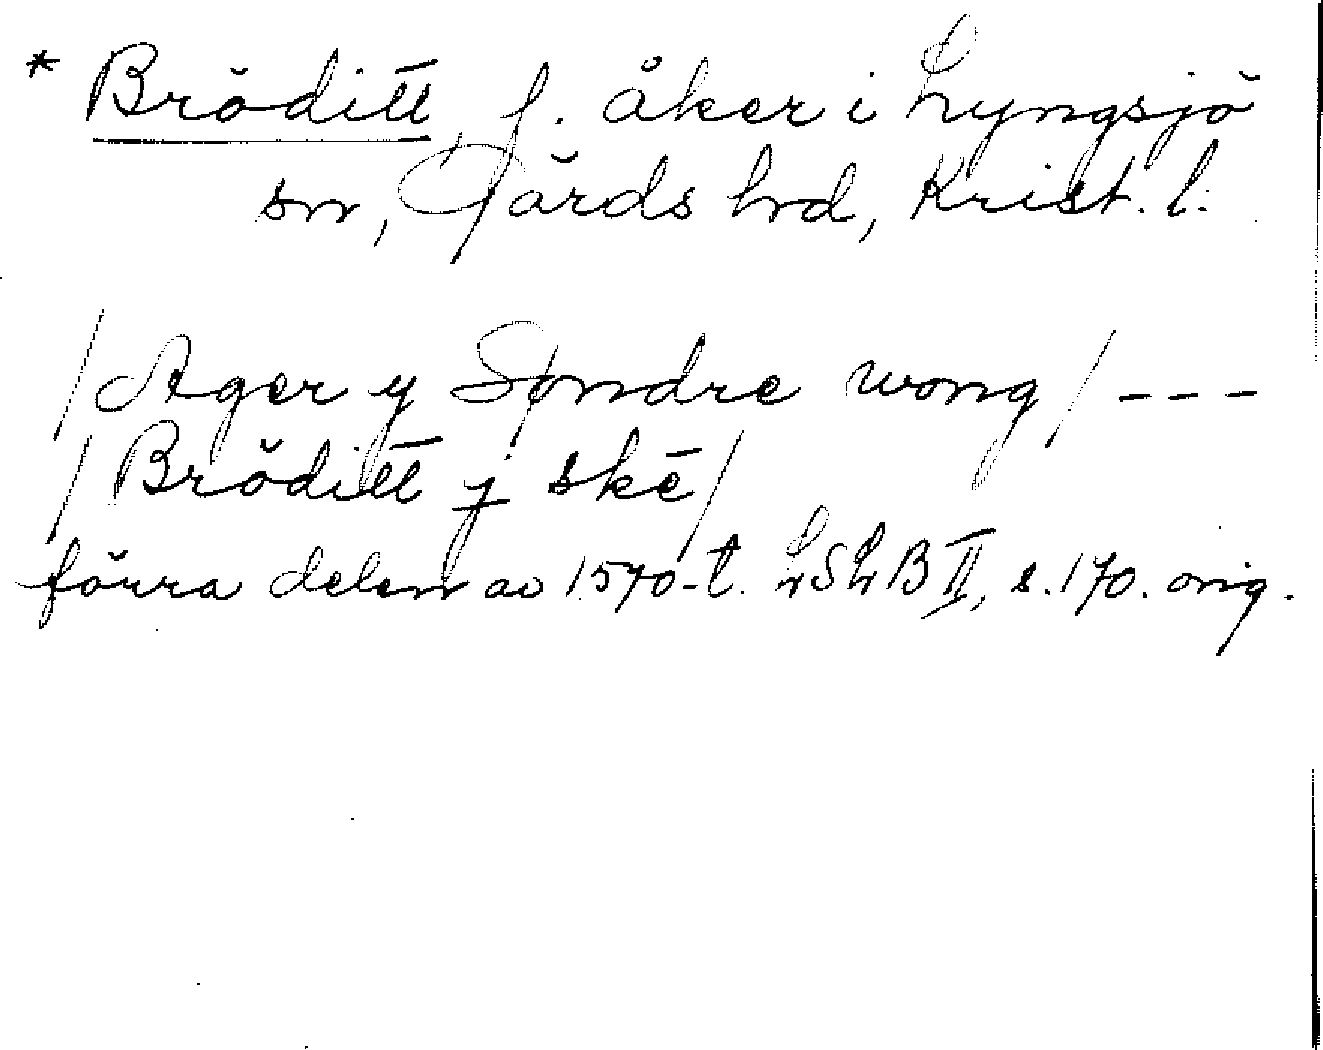 * Bröditt, f. åker i Lyngsjö
sn, Gärds hrd, Krist. l.
/Ager y Søndre wong/ ---
/Bröditt j skē/
förra delen av 1570-t. LSLB II, s. 170. orig.